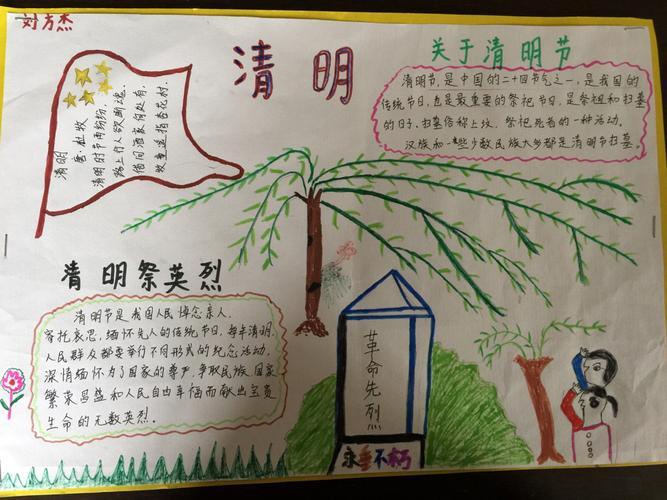 刘方杰
清明
清明
唐·杜牧
清明时节雨纷纷,
路上行人欲断魂。
借问酒家何处有,
牧童遥指杏花村。
关于清明节
清明节,是中国的二十四节气之一,是我国的
传统节日,也是最重要的祭祀节日,是祭祖和扫墓
的日子。扫墓俗称上坟,祭祀死者的一种活动。
汉族和一些少数民族大多都是清明节扫墓。
清明祭英烈
清明节是我国人民悼念亲人、
寄托哀思、缅怀先人的传统节日,每年清明,
人民群众都要举行不同形式的纪念活动,
深情缅怀为了国家的尊严,争取民族、国家
繁荣昌盛和人民自由幸福而献出宝贵
生命的无数英烈。
革命先烈
永垂不朽